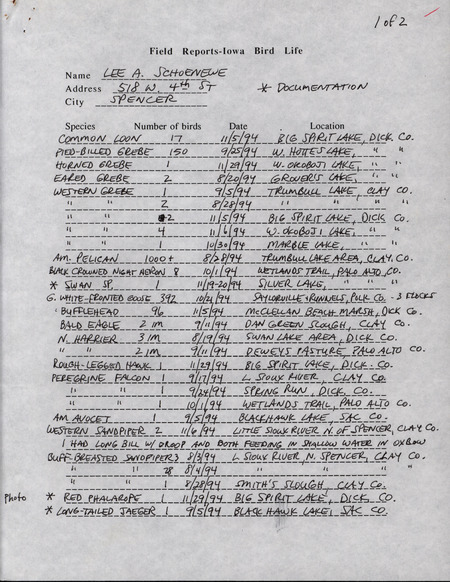 1 of 2
Field Reports-Iowa Bird Life
Name LEE A. SCHOENEWE
Address 518 W. 4th ST * DOCUMENTATION
City SPENCER
Species Number of birds Date Location
COMMON LOON 17 11/5/94 BIG SPIRIT LAKE, DICK. CO.
PIED-BILLED GREBE 150 9/25/94 W. HOTTES LAKE, " "
HORNED GREBE 1 11/29/94 W. OKOBOJI LAKE, " "
EARED GREBE 2 8/20/94 GROVER'S LAKE, " "
WESTERN GREBE 1 9/5/94 TRUMBULL LAKE, CLAY CO.
" " 2 8/28/94 " " " "
" " 2 11/5/94 BIG SPIRIT LAKE, DICK CO.
" " 4 11/6/94 W. OKOBOJI LAKE, " "
" " 1 10/30/94 MARBLE LAKE, " "
AM. PELICAN 1000+ 8/28/94 TRUMBULL LAKE AREA, CLAY, CO.
BLACK CROWNED NIGHT HERON 8 10/1/94 WETLANDS TRAIL, PALO ALTO, CO.
* SWAN SP. 1 11/19-20/94 SILVER LAKE, " "
G. WHITE-FRONTED GOOSE 392 10/21/94 SAYLORVILLE RUNNELS, POLK CO. - 3 FLOCKS
BUFFLEHEAD 96 11/5/94 McCLELLAN BEACH MARSH, DICK CO.
BALD EAGLE 2 IM 9/11/94 DAN GREEN SLOUGH, CLAY CO.
N. HARRIER 3 IM 8/19/94 SWAN LAKE AREA, DICK CO.
" " 2 IM 9/11/94 DEWEYS PASTURE, PALO ALTO CO.
ROUGH-LEGGED HAWK 1 11/29/94 BIG SPIRIT LAKE, DICK. CO.
PEREGRINE FALCON 1 9/17/94 L. SIOUX RIVER, CLAY CO.
" " 1 9/24/94 SPRING RUN, DICK. CO.
" " 1 10/1/94 WETLANDS TRAIL, PALO ALTO CO.
AM. AVOCET 1 9/5/94 BLACKHAWK LAKE, SAC CO.
WESTERN SANDPIPER 2 11/6/94 LITTLE SIOUX RIVER N. OF SPENCER, CLAY CO.
1 HAD LONG BILL W/ DROOP AND BOTH FEEDING IN SHALLOW WATER IN OXBOW
BUFF-BREASTED SANDPIPER 3 8/3/94 L. SIOUX RIVER, N. SPENCER, CLAY CO.
" " 28 8/4/94 " " " "
" " 1 8/28/94 SMITH'S SLOUGH, CLAY CO.
Photo * RED PHALAROPE 1 11/29/94 BIG SPIRIT LAKE, DICK CO.
* LONG-TAILED JAEGER 1 9/5/94 BLACK HAWK LAKE, SAC CO.